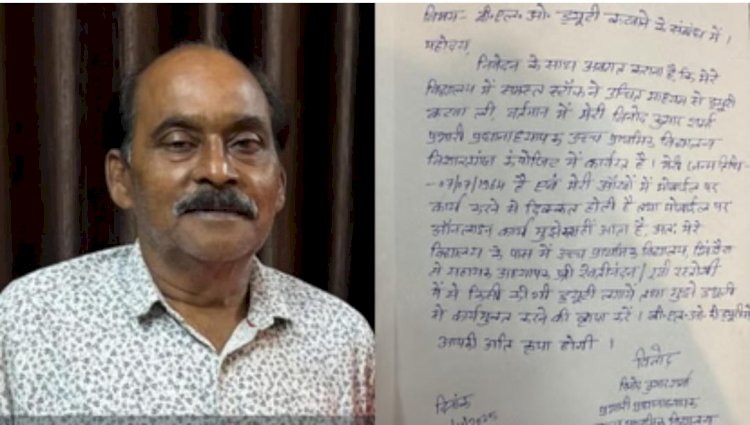 विषय- बी.एल.ओ. ड्यूटी कटवाने के संबंध में ।
महोदय,
निवेदन के साथ अवगत कराना है कि मेरे
विद्यालय में समस्त स्टॉफ ने उचित माध्यम से ड्यूटी
करवा ली, वर्तमान में मेरी विनोद कुमार शर्मा
प्रभारी प्रधानाध्यापक उच्च प्राथमिक विद्यालय
कम्पोजिट में कार्यरत है। मेरी जन्म तिथि-
-07/07/1964 है एवं मेरी आँखों में मोबाईल पर
कार्य करने में दिक्कत होती है तथा मोबाईल पर
ऑनलाइन कार्य मुझे नहीं आता है, अतः मेरे
विद्यालय के पास में उच्च प्राथमिक विद्यालय,
में सहायक अध्यापक श्री /
में से किसी की भी ड्यूटी लगाने तथा मुझे ड्यूटी
से कार्यमुक्त करने की कृपा करें। बी.एल.ओ.
आपकी अति कृपा होगी ।
विनोद
विनोद कुमार शर्मा
प्रभारी प्रधानाध्यापक
दिनांक
विद्यालय
2025